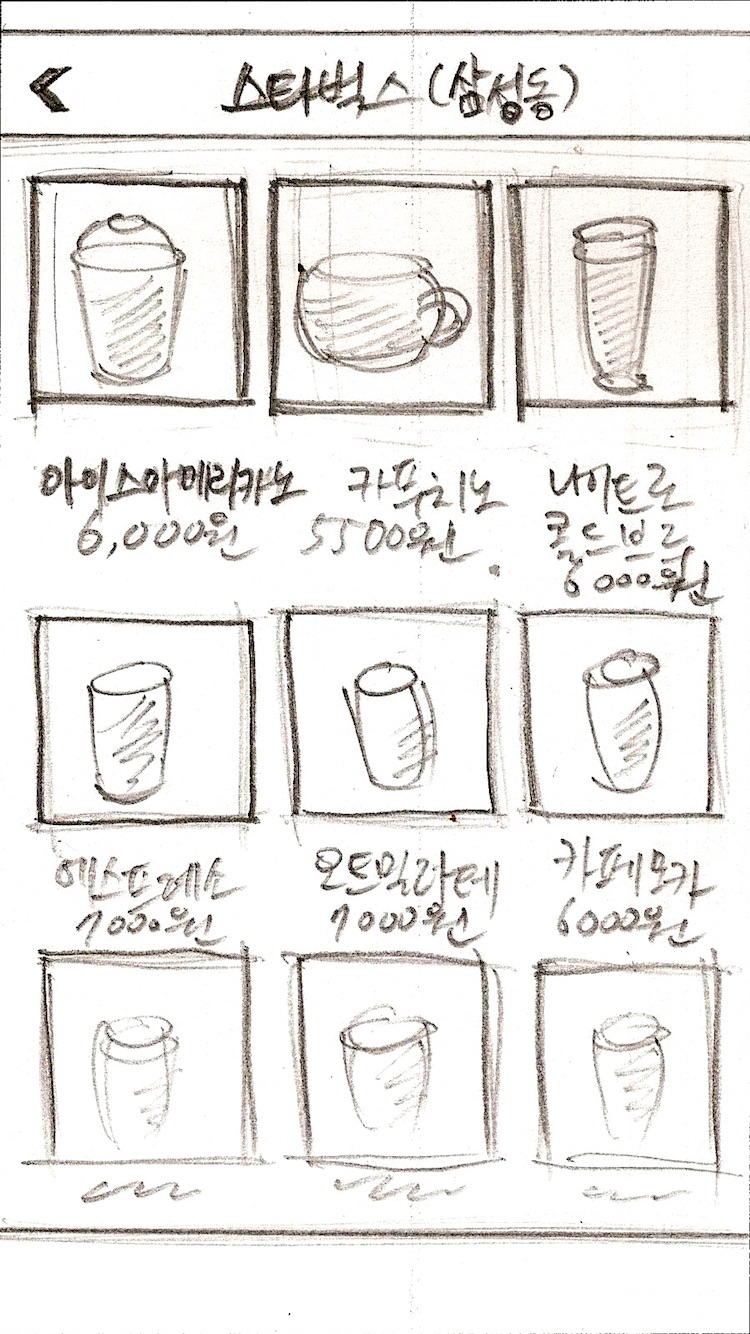 < 스타벅스 (삼성동)
아이스아메리카노
6,000원
카푸치노
5500원
나이트로
콜드브루
6000원
에스프레소
7000원
오트밀라떼
7000원
카페모카
6000원